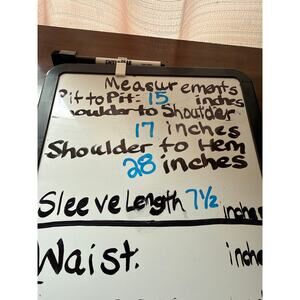 Measurements
Pit to Pit: 15 inches
Shoulder to Shoulder
17 inches
Shoulder to Hem
28 inches
Sleeve Length 7½ inches
Waist. inches